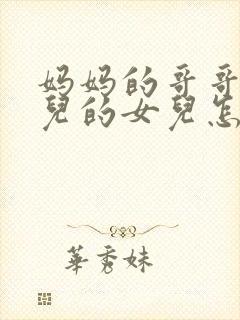 妈妈的哥哥
兒的女兒怎
華秀妹